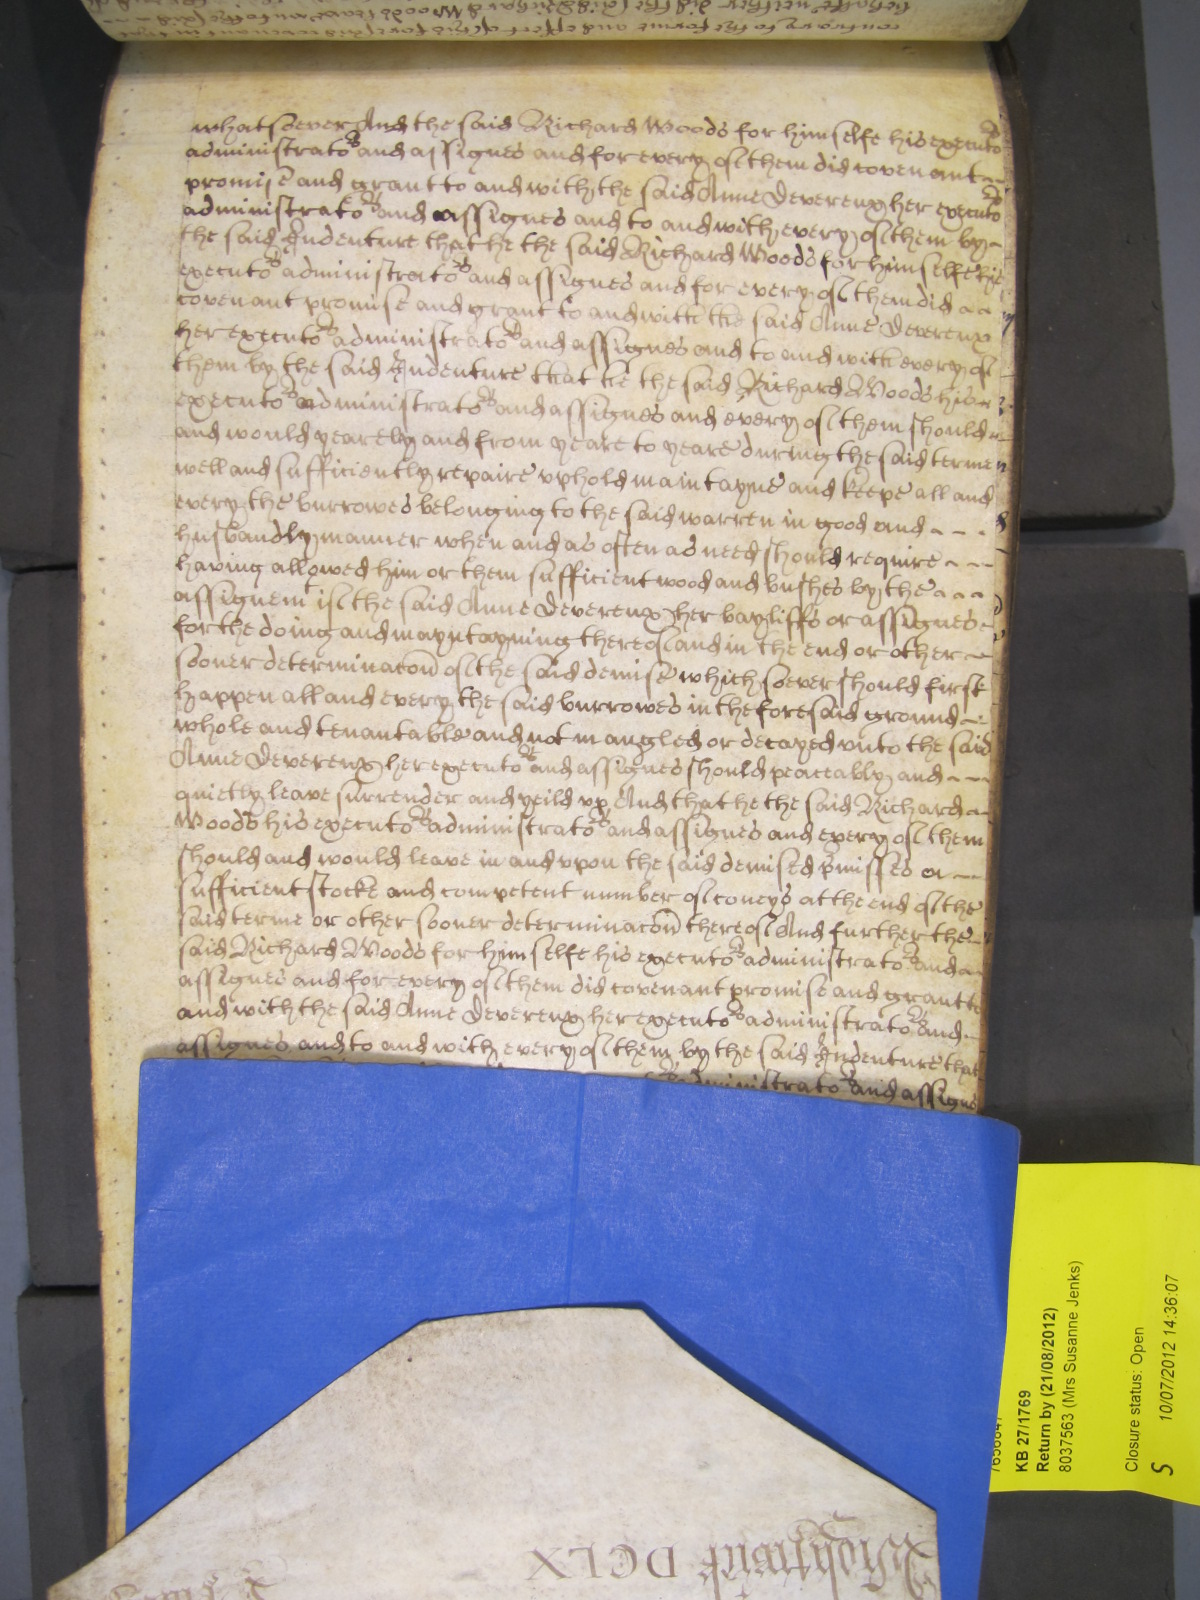 whatsoever And the said Richard Woods for himselfe his executo<sup>rs</sup>
administrato<sup>rs</sup> and assignes and for every of them did covenant
promise and grant to and with the said Anne Devereux her executo<sup>rs</sup>
administrato<sup>rs</sup> and assignes and to and with every of them by
the said Indenture that he the said Richard Woods for himselfe his
executo<sup>rs</sup> administrato<sup>rs</sup> and assignes and for every of them did
covenant promise and grant to and with the said Anne Devereux
her executo<sup>rs</sup> administrato<sup>rs</sup> and assignes and to and with every of
them by the said Indenture that he the said Richard Woods his
executo<sup>rs</sup> administrato<sup>rs</sup> and assignes and every of them should
and would yearely and from yeare to yeare during the said terme
well and sufficiently repaire uphold maintayne and keepe all and
every the burrowes belonging to the said warren in good and
husbandly manner when and as often as need should require
having allowed him or them sufficient wood and bushes by the
assignem<sup>t</sup> of the said Anne Devereux her bayliffs or assignes
for the doing and mayntayning thereof and in the end or other
sooner determinacon of the said demise which soever should first
happen all and every the said burrowes in the foresaid ground
whole and tenantable and not mangled or decayed unto the said
Anne Devereux her executo<sup>rs</sup> and assignes should peaceably and
quietly leave surrender and yeild up And that he the said Richard
Woods his executo<sup>rs</sup> administrato<sup>rs</sup> and assignes and every of them
should and would leave in and upon the said demised p<sup>r</sup>misses a
sufficient stocke and competent number of coneys at the end of the
said terme or other sooner determinacon thereof And further the
said Richard Woods for himselfe his executo<sup>rs</sup> administrato<sup>rs</sup> and
assignes and for every of them did covenant promise and grant to
and with the said Anne Devereux her executo<sup>rs</sup> administrato<sup>rs</sup> and
assignes and to and with every of them by the said Indenture that
administrato<sup>rs</sup> and assignes
KB 27/1769
Return by (21/08/2012)
8037563 (Mrs Susanne Jenks)
Closure status: Open
S 10/07/2012 14:36:07
DCLX